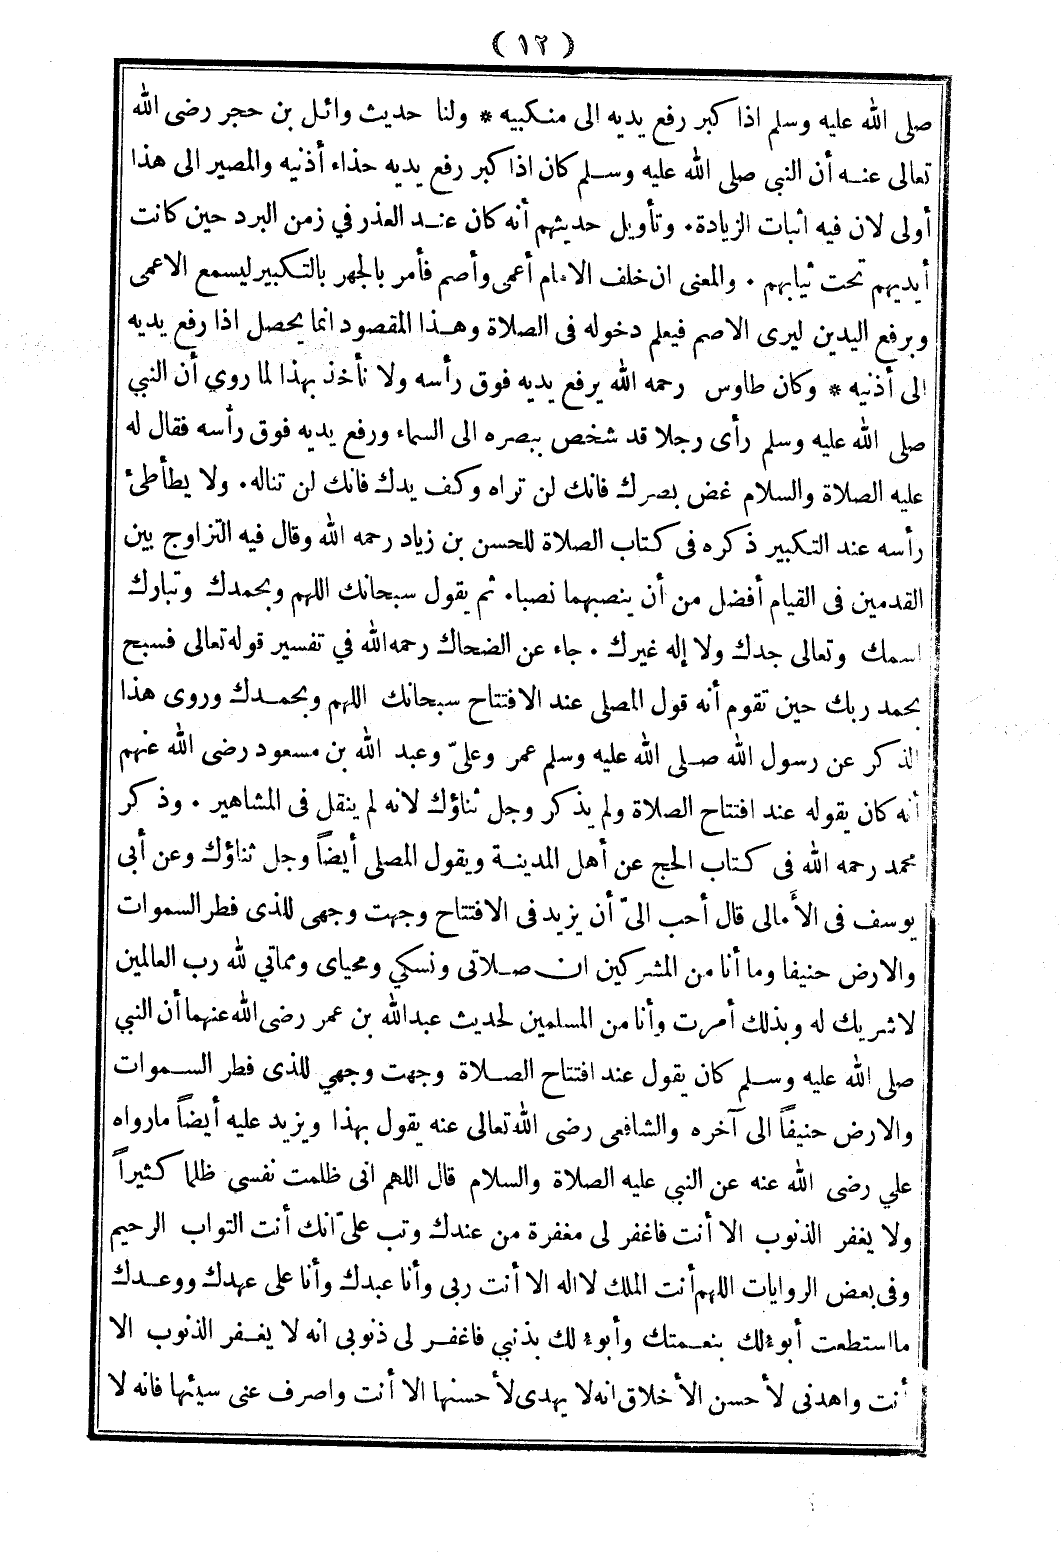 ( ١٢ )
صلى الله عليه وسلم اذا كبر رفع يديه الى منكبيه * ولنا حديث وائل بن حجر رضى الله
تعالى عنه أن النبى صلى الله عليه وسلم كان اذا كبر رفع يديه حذاء أذنيه والمصير الى هذا
أولى لان فيه اثبات الزيادة. وتأويل حديثهم أنه كان عند العذر في زمن البرد حين كانت
أيديهم تحت ثيابهم . والمعنى ان خلف الامام أعمى وأصم فأمر بالجهر بالتكبير ليسمع الاعمى
وبرفع اليدين ليرى الاصم فيعلم دخوله فى الصلاة وهذا المقصود انما يحصل اذا رفع يديه
الى أذنيه * وكان طاوس رحمه الله يرفع يديه فوق رأسه ولا نأخذ بهذا لما روي أن النبي
صلى الله عليه وسلم رأى رجلا قد شخص ببصره الى السماء ورفع يديه فوق رأسه فقال له
عليه الصلاة والسلام غض بصرك فانك لن تراه وكف يدك فانك لن تناله. ولا يطأطئ
رأسه عند التكبير ذكره فى كتاب الصلاة للحسن بن زياد رحمه الله وقال فيه التراوح بين
القدمين فى القيام أفضل من أن ينصبهما نصبا. ثم يقول سبحانك اللهم وبحمدك وتبارك
اسمك وتعالى جدك ولا إله غيرك . جاء عن الضحاك رحمه الله في تفسير قوله تعالى فسبح
بحمد ربك حين تقوم أنه قول المصلى عند الافتتاح سبحانك اللهم وبحمدك وروى هذا
الذكر عن رسول الله صلى الله عليه وسلم عمر وعلىّ وعبد الله بن مسعود رضى الله عنهم
أنه كان يقوله عند افتتاح الصلاة ولم يذكر وجل ثناؤك لانه لم ينقل فى المشاهير . وذكر
محمد رحمه الله فى كتاب الحج عن أهل المدينة ويقول المصلى أيضاً وجل ثناؤك وعن أبى
يوسف فى الأمالى قال أحب الىّ أن يزيد فى الافتتاح وجهت وجهى للذى فطر السموات
والارض حنيفا وما أنا من المشركين ان صلاتى ونسكي ومحياى ومماتي لله رب العالمين
لاشريك له وبذلك أمرت وأنا من المسلمين لحديث عبدالله بن عمر رضى الله عنهما أن النبي
صلى الله عليه وسلم كان يقول عند افتتاح الصلاة وجهت وجهي للذى فطر السموات
والارض حنيفاً الى آخره والشافعى رضى الله تعالى عنه يقول بهذا ويزيد عليه أيضاً مارواه
علي رضى الله عنه عن النبي عليه الصلاة والسلام قال اللهم انى ظلمت نفسى ظلما كثيراً
ولا يغفر الذنوب الا أنت فاغفر لى مغفرة من عندك وتب علىّ انك أنت التواب الرحيم
وفى بعض الروايات اللهم أنت الملك لااله الا أنت ربى وأنا عبدك وأنا على عهدك ووعدك
مااستطعت أبوء لك بنعمتك وأبوء لك بذنبي فاغفر لى ذنوبى انه لا يغفر الذنوب الا
أنت واهدنى لأحسن الأخلاق انه لا يهدى لأحسنها الا أنت واصرف عنى سيئها فانه لا